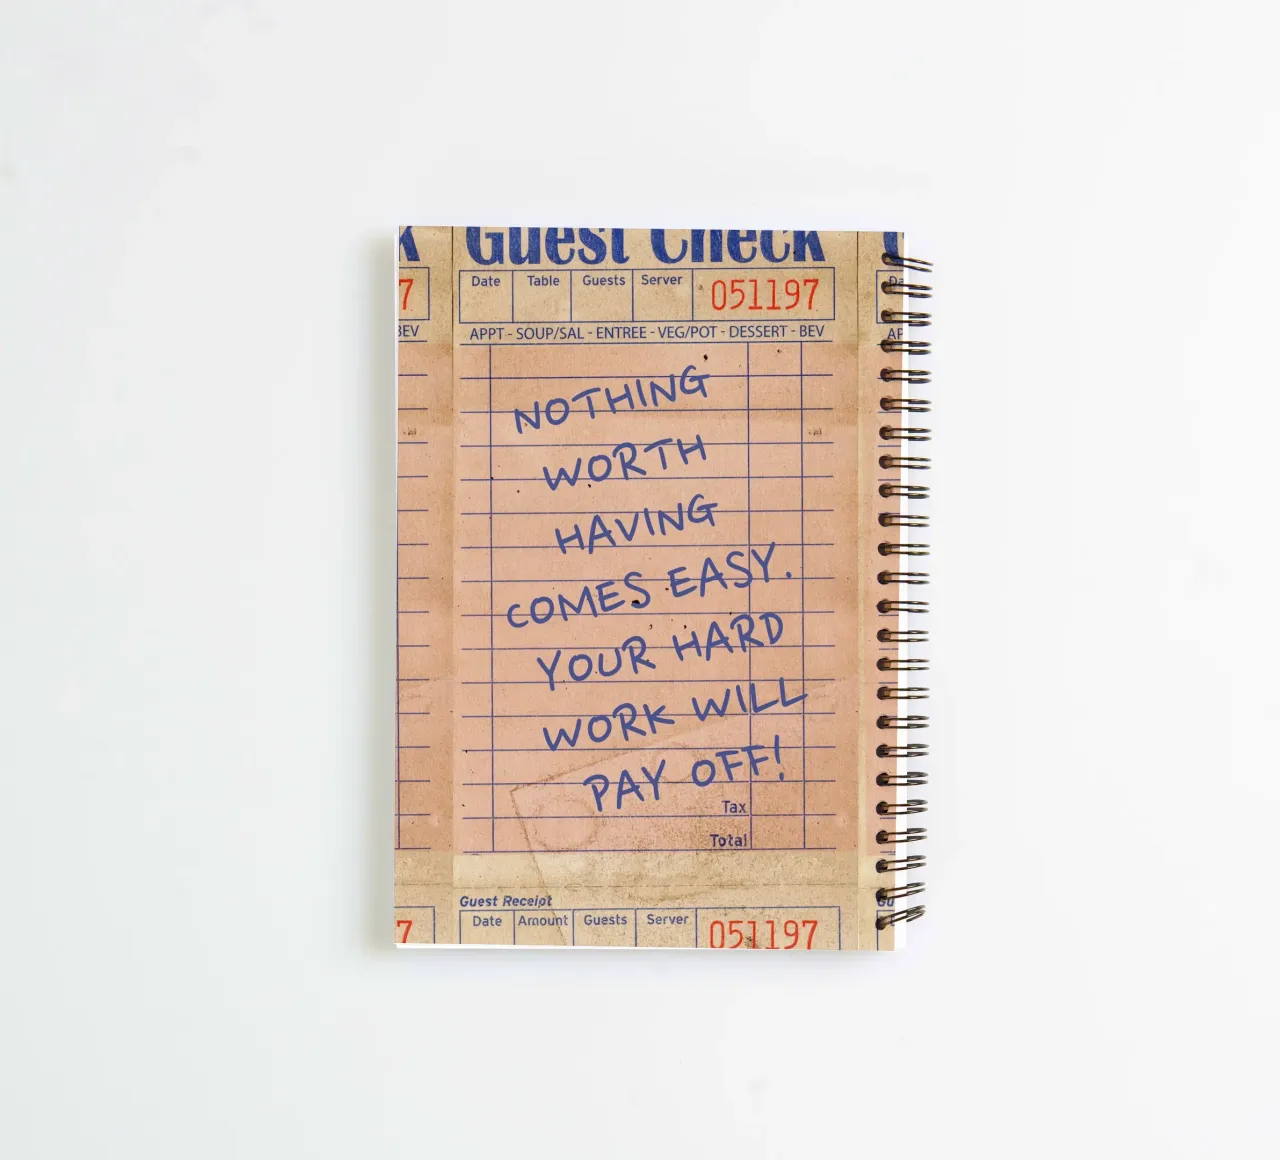 K Guest Check
Date Table Guests Server 051197 Da
7
BEV APPT - SOUP/SAL - ENTREE - VEG/POT - DESSERT - BEV AP
NOTHING
WORTH
HAVING
COMES EASY.
YOUR HARD
WORK WILL
PAY OFF!
Tax
Total
Guest Receipt Gu
Date Amount Guests Server 051197
7